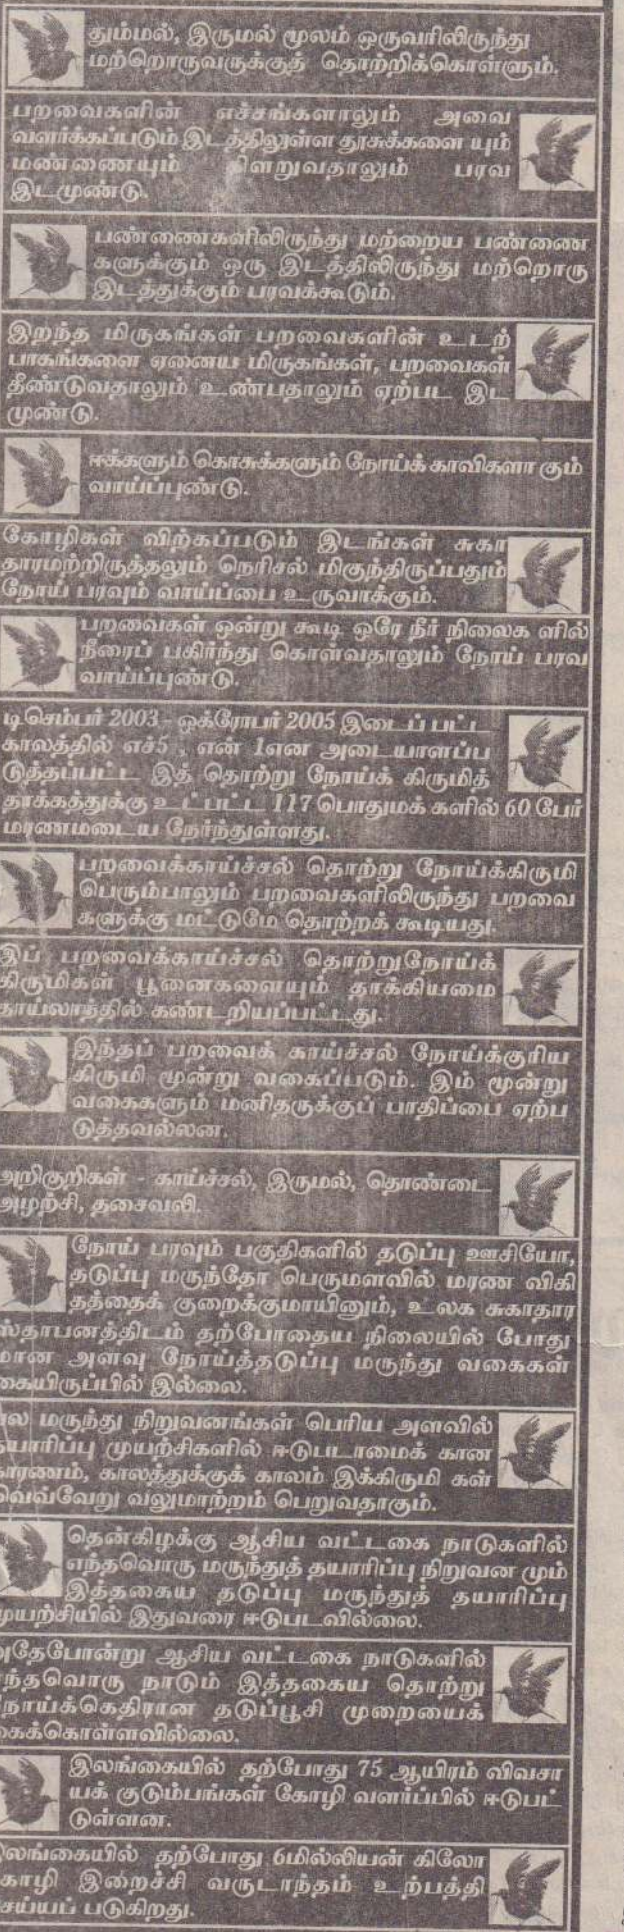 தும்மல், இருமல் மூலம் ஒருவரிலிருந்து
மற்றொருவருக்குத் தொற்றிக்கொள்ளும்.
பறவைகளின் எச்சங்களாலும் அவை
வளர்க்கப்படும் இடத்திலுள்ள தூசுக்களை யும்
மண்ணையும் கிளறுவதாலும் பரவ
இடமுண்டு.
பண்ணைகளிலிருந்து மற்றைய பண்ணை
களுக்கும் ஒரு இடத்திலிருந்து மற்றொரு
இடத்துக்கும் பரவக்கூடும்.
இறந்த மிருகங்கள் பறவைகளின் உடற்
பாகங்களை ஏனைய மிருகங்கள், பறவைகள்
தீண்டுவதாலும் உண்பதாலும் ஏற்பட இட
முண்டு.
ஈக்களும் கொசுக்களும் நோய்க் காவிகளா கும்
வாய்ப்புண்டு.
கோழிகள் விற்கப்படும் இடங்கள் சுகா
தாரமற்றிருத்தலும் நெரிசல் மிகுந்திருப்பதும்
நோய் பரவும் வாய்ப்பை உருவாக்கும்.
பறவைகள் ஒன்று கூடி ஒரே நீர் நிலைக ளில்
நீரைப் பகிர்ந்து கொள்வதாலும் நோய் பரவ
வாய்ப்புண்டு.
டிசெம்பர் 2003 - ஒக்ரோபர் 2005 இடைப் பட்ட
காலத்தில் எச்5 , என் 1என அடையாளப்ப
டுத்தப்பட்ட இத் தொற்று நோய்க் கிருமித்
தாக்கத்துக்கு உட்பட்ட 117 பொதுமக் களில் 60 பேர்
மரணமடைய நேர்ந்துள்ளது.
பறவைக்காய்ச்சல் தொற்று நோய்க்கிருமி
பெரும்பாலும் பறவைகளிலிருந்து பறவை
களுக்கு மட்டுமே தொற்றக் கூடியது.
இப் பறவைக்காய்ச்சல் தொற்றுநோய்க்
கிருமிகள் பூனைகளையும் தாக்கியமை
தாய்லாந்தில் கண்டறியப்பட்டது.
இந்தப் பறவைக் காய்ச்சல் நோய்க்குரிய
கிருமி மூன்று வகைப்படும். இம் மூன்று
வகைகளும் மனிதருக்குப் பாதிப்பை ஏற்ப
டுத்தவல்லன.
அறிகுறிகள் - காய்ச்சல், இருமல், தொண்டை
அழற்சி, தசைவலி.
நோய் பரவும் பகுதிகளில் தடுப்பு ஊசியோ,
தடுப்பு மருந்தோ பெருமளவில் மரண விகி
தத்தைக் குறைக்குமாயினும், உலக சுகாதார
ஸ்தாபனத்திடம் தற்போதைய நிலையில் போது
மான அளவு நோய்த்தடுப்பு மருந்து வகைகள்
கையிருப்பில் இல்லை.
பல மருந்து நிறுவனங்கள் பெரிய அளவில்
தயாரிப்பு முயற்சிகளில் ஈடுபடாமைக் கான
காரணம், காலத்துக்குக் காலம் இக்கிருமி கள்
வெவ்வேறு வலுமாற்றம் பெறுவதாகும்.
தென்கிழக்கு ஆசிய வட்டகை நாடுகளில்
எந்தவொரு மருந்துத் தயாரிப்பு நிறுவன மும்
இத்தகைய தடுப்பு மருந்துத் தயாரிப்பு
முயற்சியில் இதுவரை ஈடுபடவில்லை.
அதேபோன்று ஆசிய வட்டகை நாடுகளில்
எந்தவொரு நாடும் இத்தகைய தொற்று
நோய்க்கெதிரான தடுப்பூசி முறையைக்
கைக்கொள்ளவில்லை.
இலங்கையில் தற்போது 75 ஆயிரம் விவசா
யக் குடும்பங்கள் கோழி வளர்ப்பில் ஈடுபட்
டுள்ளன.
இலங்கையில் தற்போது 6மில்லியன் கிலோ
கோழி இறைச்சி வருடாந்தம் உற்பத்தி
செய்யப் படுகிறது.